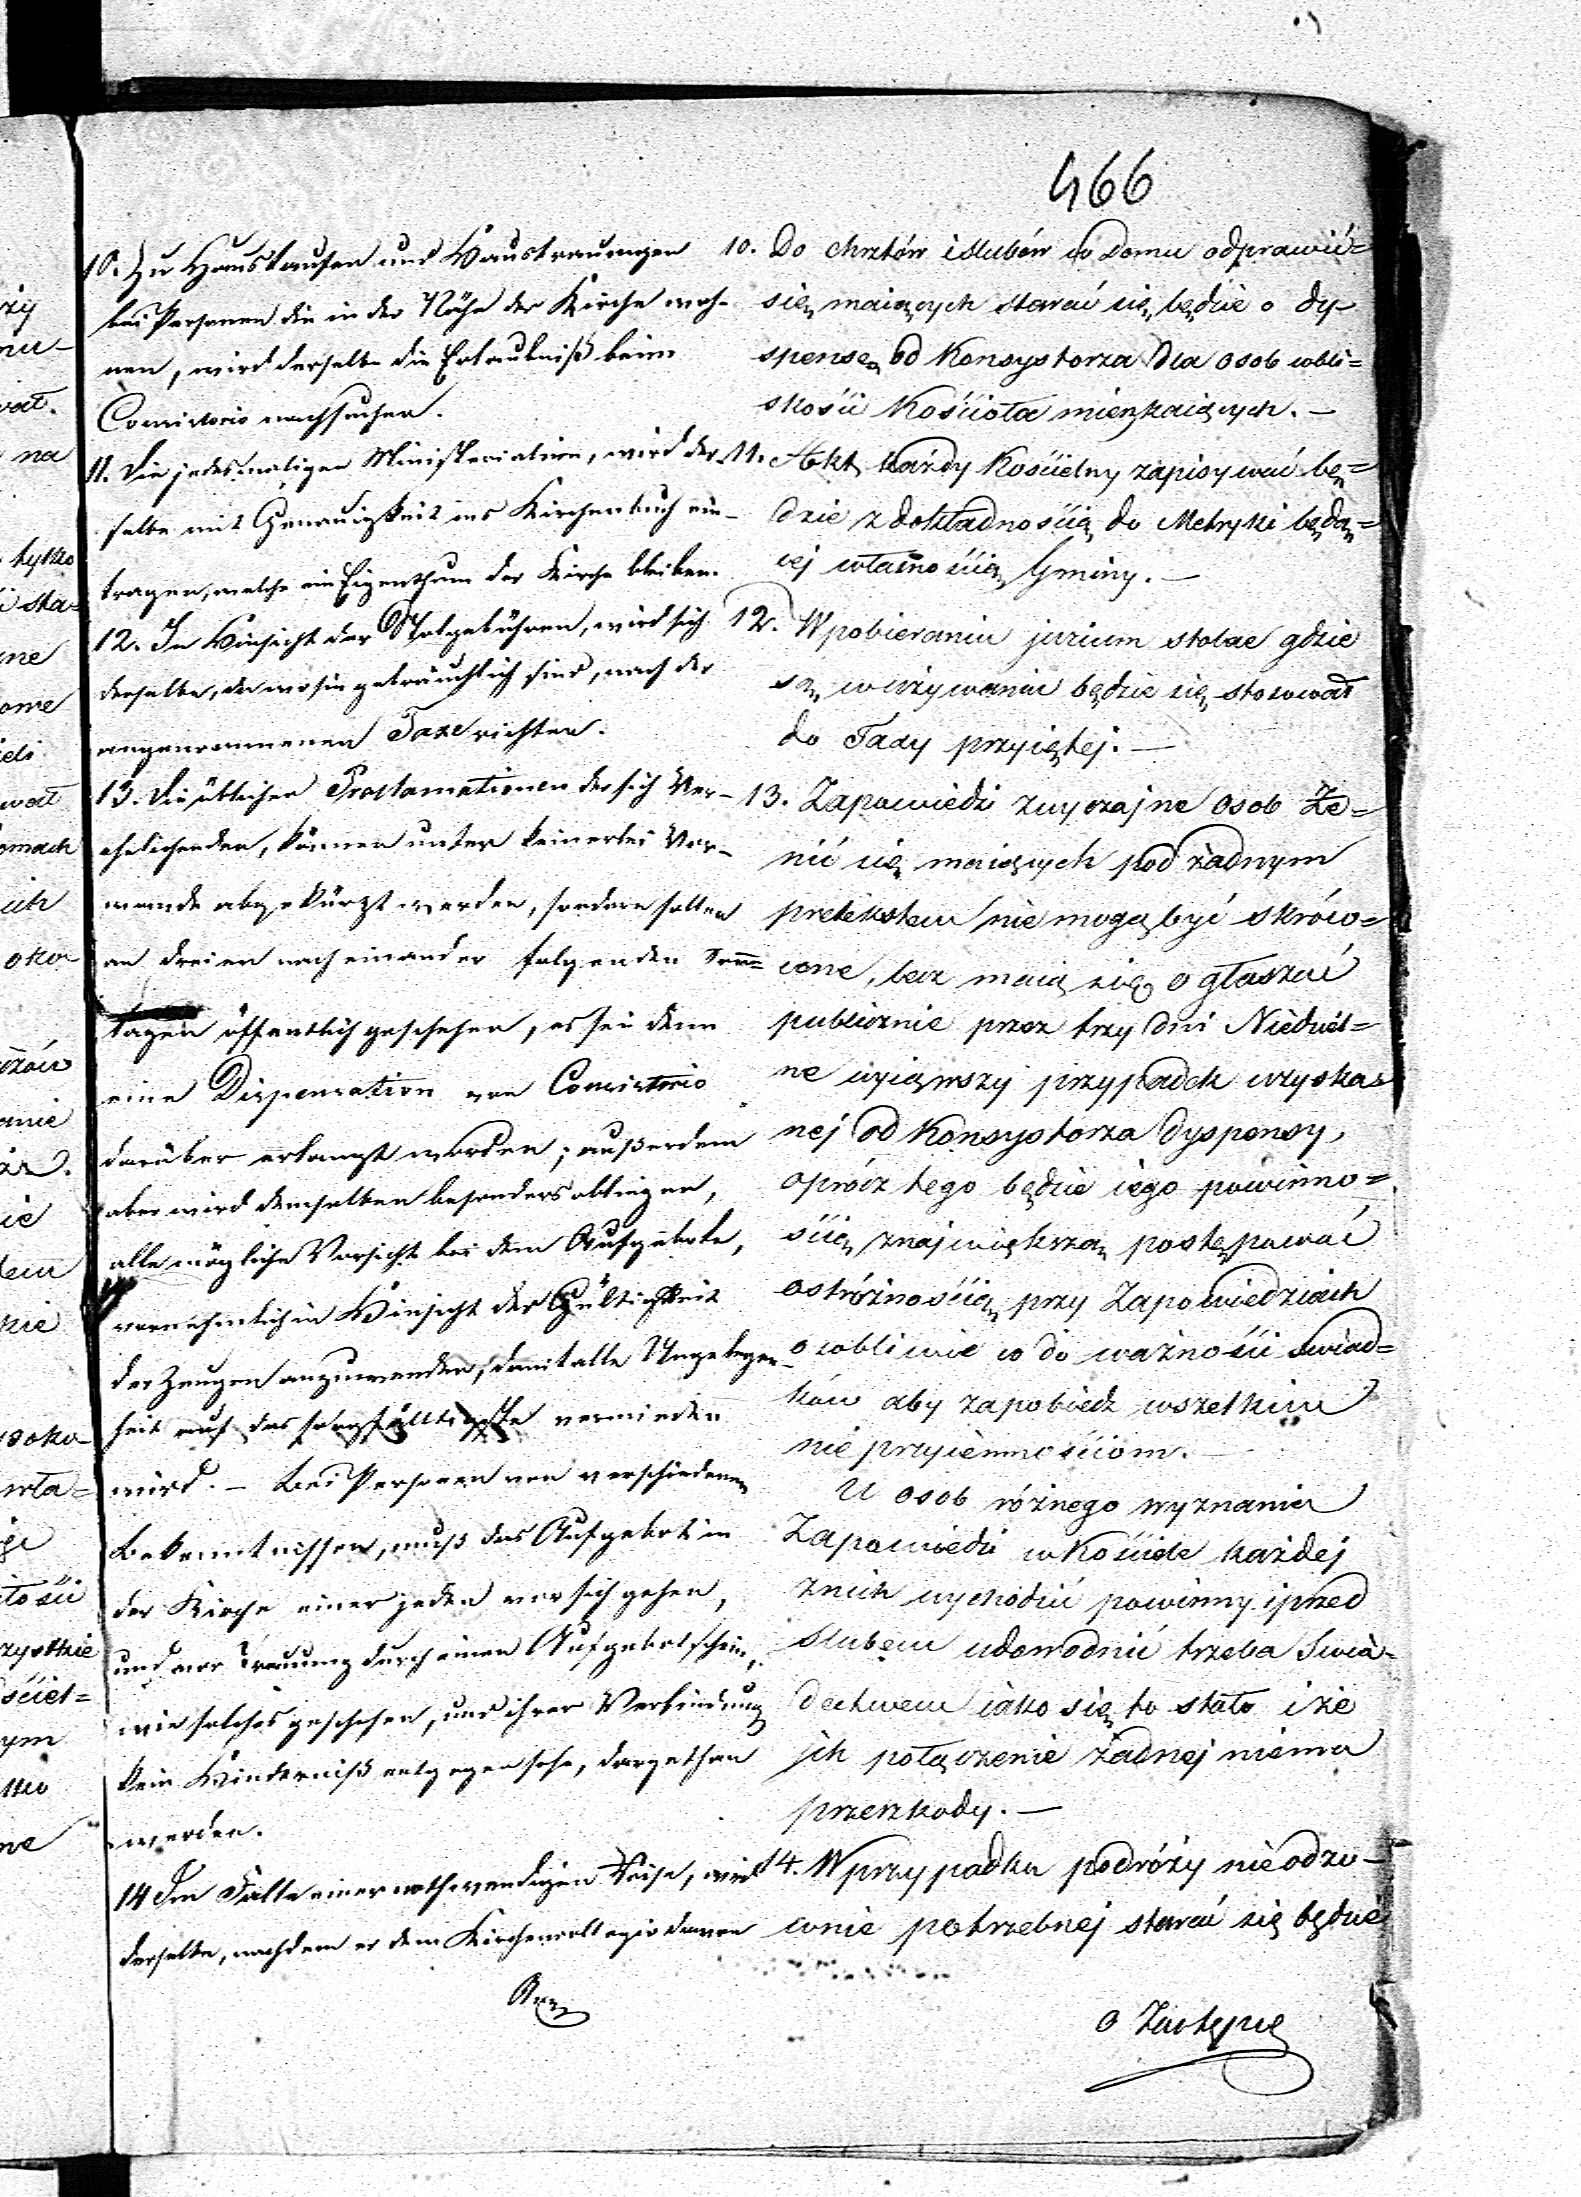 466
10. Zu Haustaufen und Haustrauungen
bei Personen die in der Nähe der Kirche woh-
nen, wird derselbe die Erlaubniß beim
Consistorio nachsuchen.
11. Die jedesmaligen Ministerialien, wird der-
selbe mit Genauigkeit ins Kirchenbuch ein-
tragen, welche ein Eigenthum der Kirche bleiben.
12. In Hinsicht der Stolgebühren, wird sich
derselbe, da wo sie gebräuchlich sind, nach der
angenommenen Taxe richten.
13. Die üblichen Proclamationen der sich Ver-
ehelichenden, können unter keinerlei Vor-
wande abgekürzt werden, sondern sollen
an dreien nach einander folgenden Sonn=
tagen öffentlich geschehen, es sei denn
eine Dispensation von Consistorio
darüber erlangt worden; außerdem
aber wird demselben besonders obliegen,
alle mögliche Vorsicht bei dem Aufgebote,
vornehmlich in Hinsicht der Gültigkeit
der Zeugen anzuwenden, damit alle Ungelegen-
heit auf das sorgfältigste vermieden
wird. – Bei Personen von verschiedenen
Bekenntnissen, muß das Aufgebot in
der Kirche einer jeden vor sich gehen,
und vor Trauung durch einen Aufgebotschein,
wie solches geschehen, und ihrer Verbindung
kein Hinderniß entgegen sehe, dargethan
werden.
14 Im Falle einer nothwendigen Reise, wird
derselbe, nachdem er dem Kirchencollegio davon
10. Do chrztów i slubów w Domu odprawić=
się maiących starać się będzie o dy-
spensę od Konsystorza dla osob wbli=
skości Kościoła mięszkaiących. –
11. Akt każdy Kościelny zapisywać bę=
dzie z dokładnością do Metryki będą=
cej własnością Gminy. –
12. W pobieraniu jurium stolae gdzie
są w używaniu będzie się stosował
do Taxy przyiętej. –
13. Zapowiedzi zwyczajne osob że=
nić się maiących pod żadnym
pretekstem nie mogą być skróco=
cone, lecz maią się ogłaszać
publicznie przez trzy dni Niedziel=
ne wyiąwszy przypadek uzyska=
nej od Konsystorza dyspensy,
oprócz tego będzie iego powinno=
ścią znajwiększą postępować
ostróżnością przy Zapowiedziach
osobliwie co do ważności Swiad=
ków aby zapobiedz wszelkim
nieprzyiemnościom. –
U osob różnego wyznania
Zapowiedzi w Kościele każdej
znich wychodzić powinny i przed
slubem udowodnić trzeba Swia-
dectwem iako się to stało i że
ich połączenie żadnej niema
przeszkody. –
14. W przypadku podróży nieodzo-
wnie potrzebnej starać się będzie
o Zastępcę